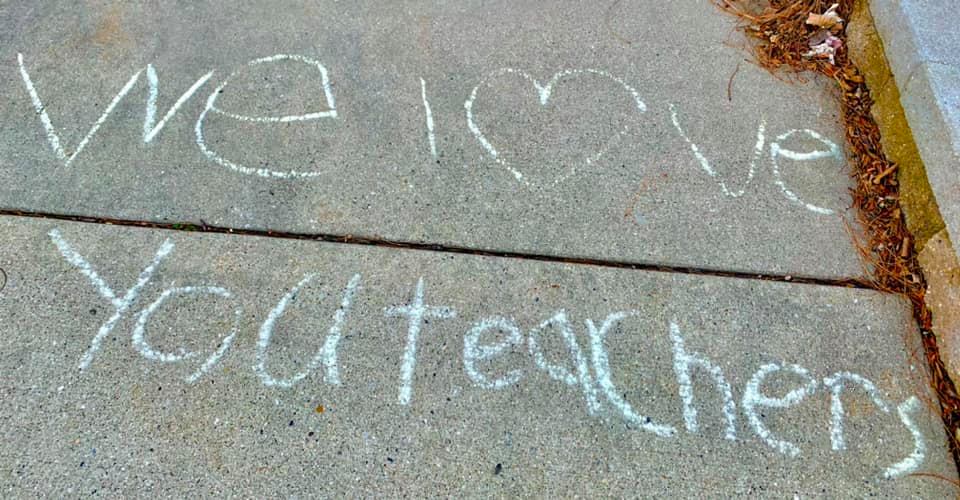 We l♡ve
You teachers